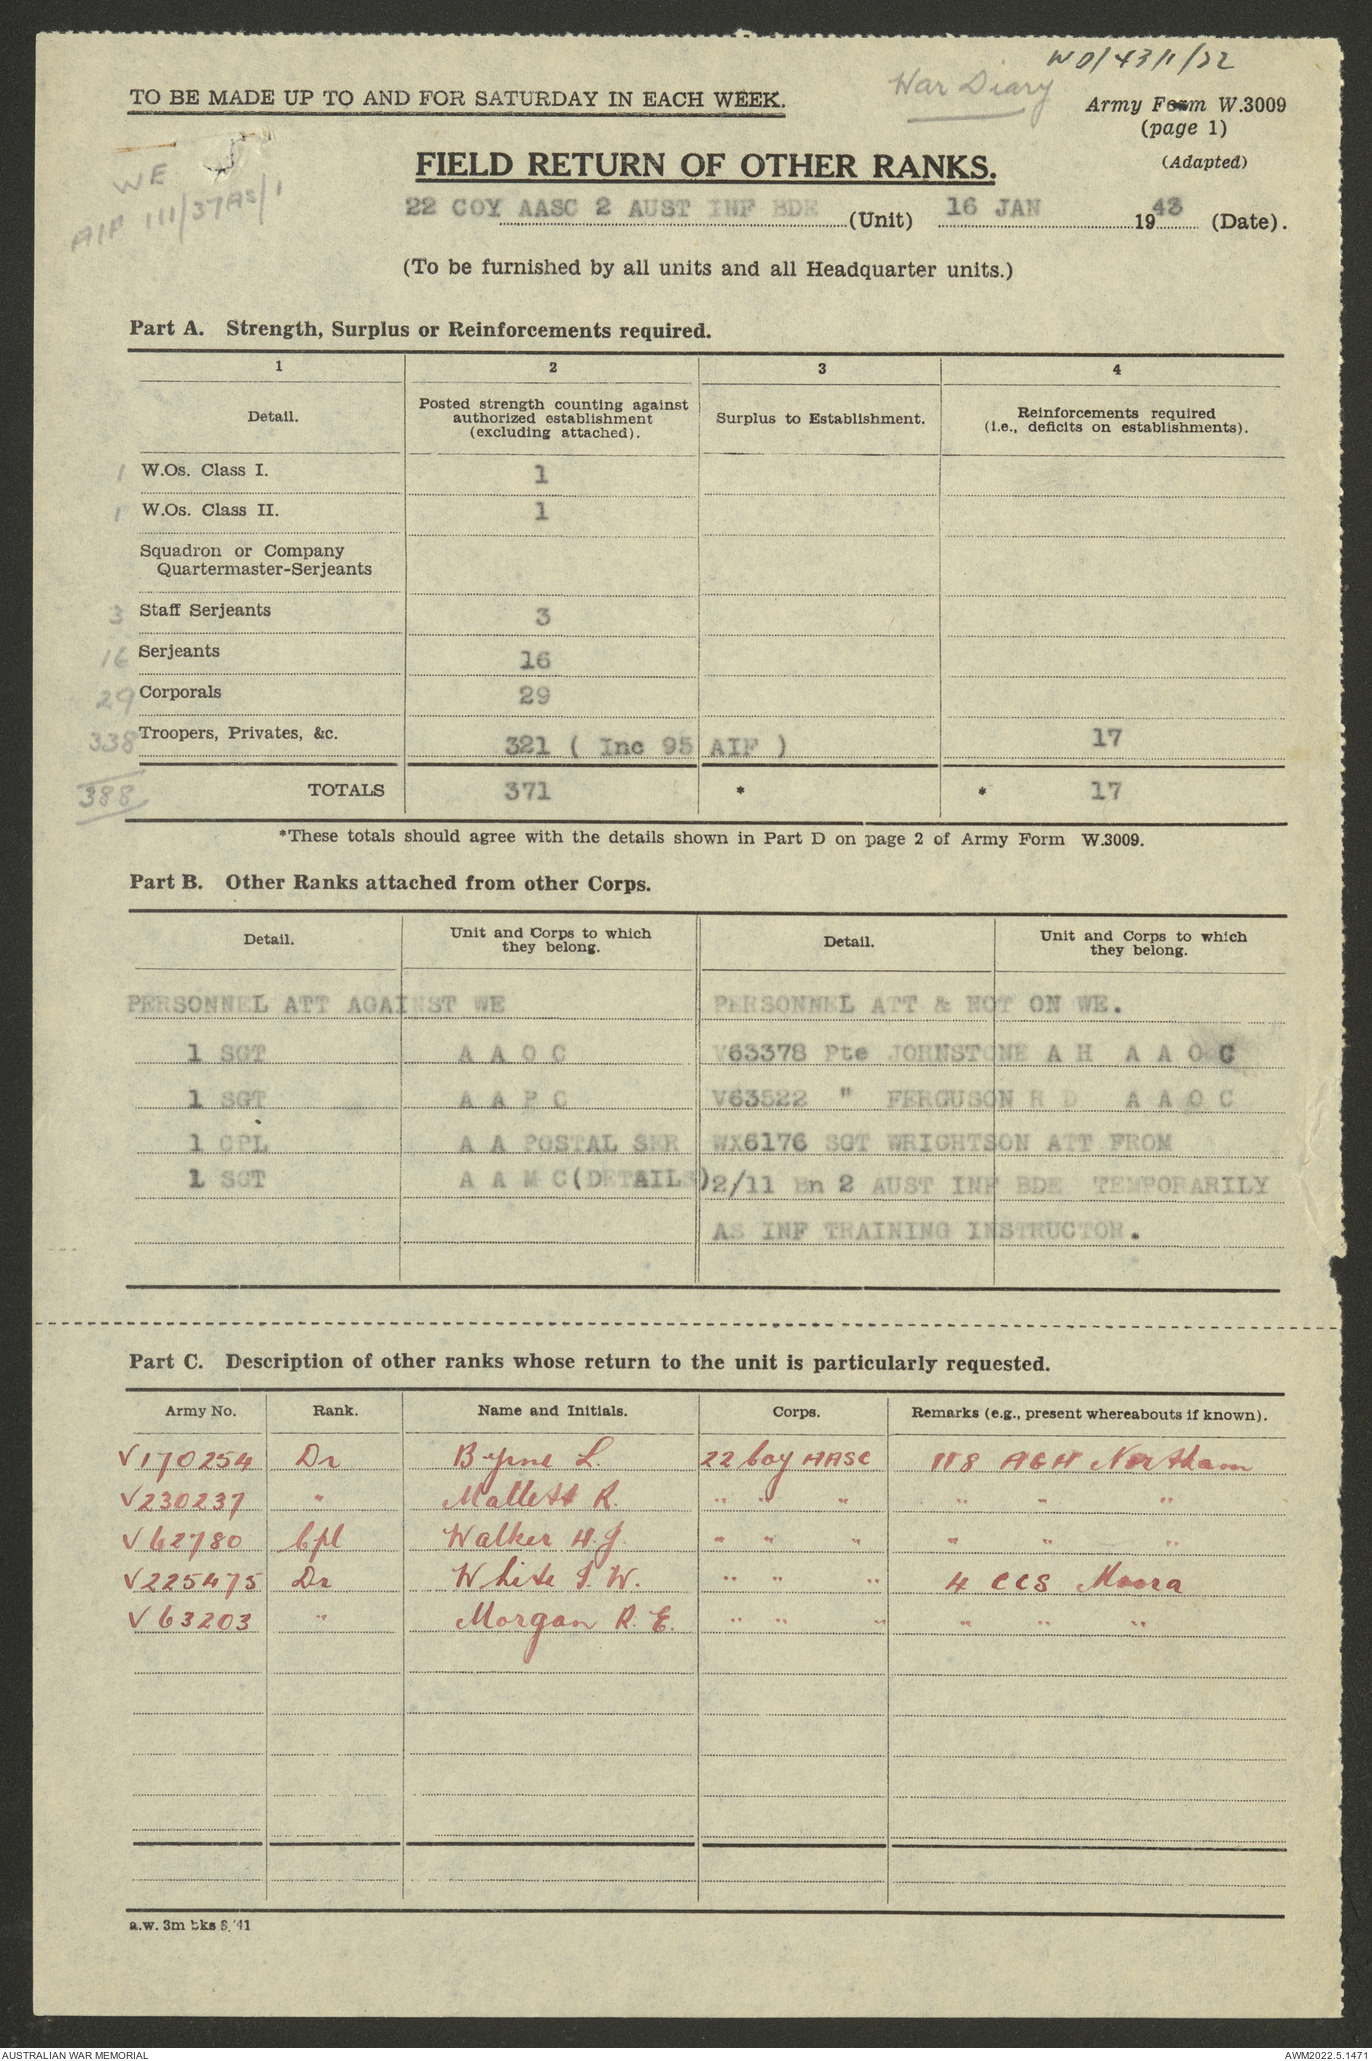 WD/43/1/22
War Diary
TO BE MADE UP TO AND FOR SATURDAY IN EACH WEEK.
Army Form W.3009
(page 1)
(Adapted)
WE
AIP 111/37AS/1
FIELD RETURN OF OTHER RANKS.
22 COY AASC 2 AUST INF BDE (Unit) 16 JAN 1943 (Date).
(To be furnished by all units and all Headquarter units.)
Part A. Strength, Surplus or Reinforcements required.
1 2 3 4
Detail. Posted strength counting against authorized establishment (excluding attached). Surplus to Establishment. Reinforcements required (i.e., deficits on establishments).
1 W.Os. Class I. 1
1 W.Os. Class II. 1
Squadron or Company
Quartermaster-Serjeants
3 Staff Serjeants 3
16 Serjeants 16
29 Corporals 29
338 Troopers, Privates, &c. 321 ( Inc 95 AIF ) 17
388 TOTALS 371 * * 17
*These totals should agree with the details shown in Part D on page 2 of Army Form W.3009.
Part B. Other Ranks attached from other Corps.
Detail. Unit and Corps to which they belong. Detail. Unit and Corps to which they belong.
PERSONNEL ATT AGAINST WE PERSONNEL ATT & NOT ON WE.
1 SGT A A O C V63378 Pte JOHNSTONE A H A A O C
1 SGT A A P C V63522 " FERGUSON R D A A O C
1 CPL A A POSTAL SER WX6176 SGT WRIGHTSON ATT FROM
1 SGT A A M C(DETAILS) 2/11 Bn 2 AUST INF BDE TEMPORARILY
AS INF TRAINING INSTRUCTOR.
Part C. Description of other ranks whose return to the unit is particularly requested.
Army No. Rank. Name and Initials. Corps. Remarks (e.g., present whereabouts if known).
V170254 Dr Byrne L. 22 Coy AASC 118 AGH Northam
V230237 " Mallett R. " " " " " "
V62780 Cpl Walker H.J. " " " " " "
V225475 Dr White I. W. " " " 4 CCS Moora
V63203 " Morgan R. E. " " " " " "
a.w. 3m bks 8/41